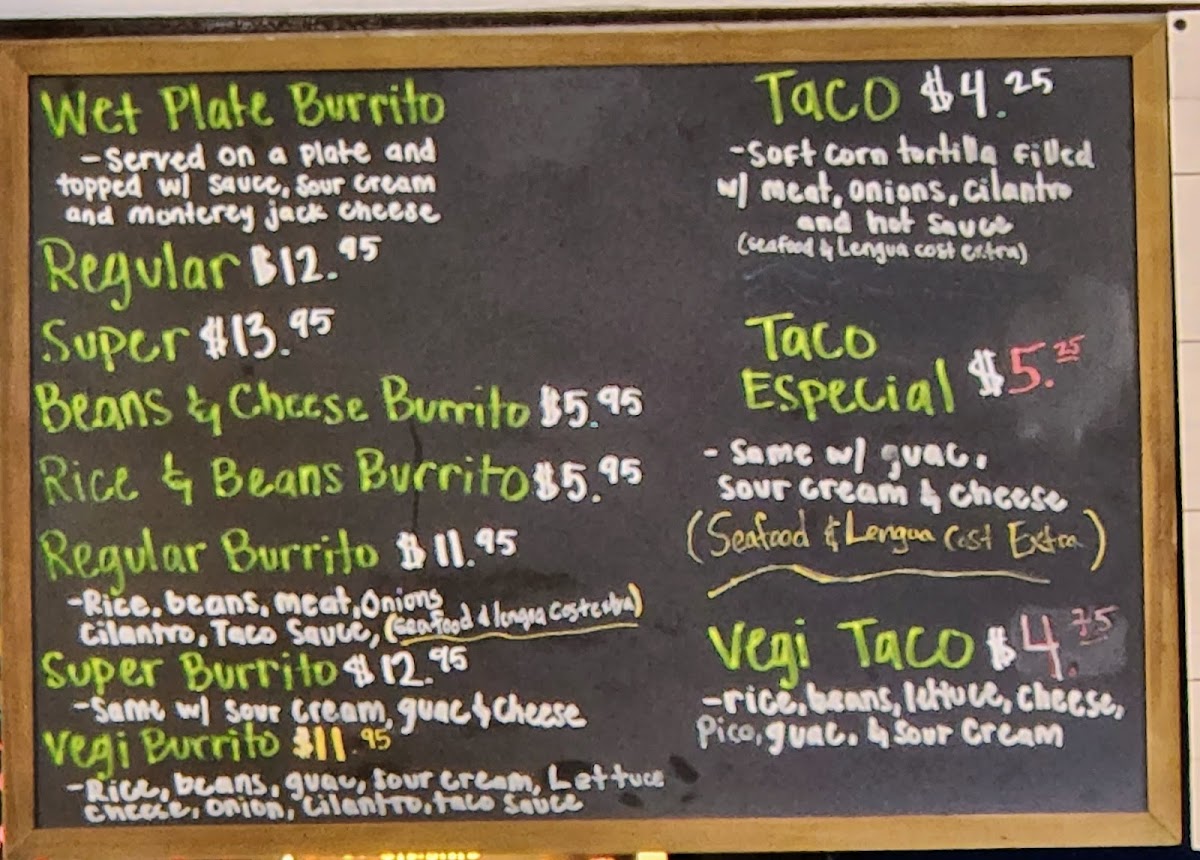 Wet Plate Burrito
- Served on a plate and
topped w/ sauce, sour cream
and monterey jack cheese
Regular $12.95
Super $13.95
Beans & Cheese Burrito $5.95
Rice & Beans Burrito $5.95
Regular Burrito $11.95
- Rice, beans, meat, Onions
Cilantro, Taco Sauce, (seafood & lengua cost extra)
Super Burrito $12.95
- Same w/ sour cream, guac & cheese
Vegi Burrito $11.95
- Rice, beans, guac, sour cream, Lettuce
cheese, onion, cilantro, taco sauce
Taco $4.25
- Soft corn tortilla filled
w/ meat, onions, cilantro
and hot sauce
(seafood & Lengua cost extra)
Taco
Especial $5.25
- Same w/ guac,
sour cream & cheese
(Seafood & Lengua Cost Extra)
Vegi Taco $4.75
- rice, beans, lettuce, cheese,
Pico, guac. & sour cream